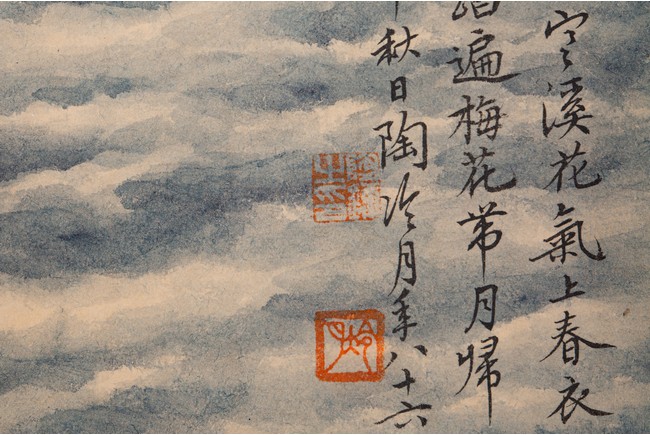 寒溪花氣上春衣
踏遍梅花带月歸
秋日陶冷月年八十六